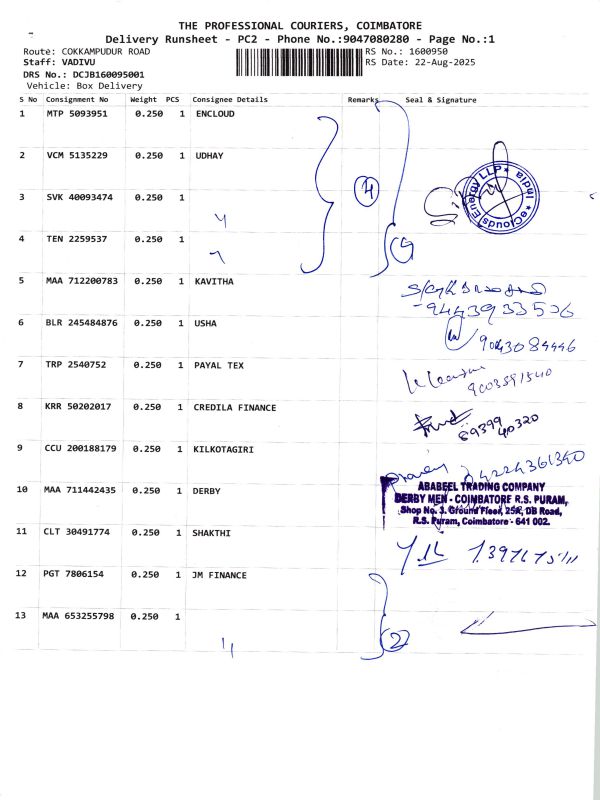 THE PROFESSIONAL COURIERS, COIMBATORE
Delivery Runsheet - PC2 - Phone No.:9047080280 - Page No.:1
Route: COKKAMPUDUR ROAD
RS No.: 1600950
Staff: VADIVU
RS Date: 22-Aug-2025
DRS No.: DCJB160095001
Vehicle: Box Delivery
S No Consignment No Weight PCS Consignee Details Remarks Seal & Signature
1 MTP 5093951 0.250 1 ENCLOUD
2 VCM 5135229 0.250 1 UDHAY
3 SVK 40093474 0.250 1
4 TEN 2259537 0.250 1
4
eClouds Energy LLP ★ India ★
5 MAA 712200783 0.250 1 KAVITHA
9443933506
6 BLR 245484876 0.250 1 USHA
9043084446
7 TRP 2540752 0.250 1 PAYAL TEX
9003591540
8 KRR 50202017 0.250 1 CREDILA FINANCE
89399
40320
9 CCU 200188179 0.250 1 KILKOTAGIRI
04224361340
10 MAA 711442435 0.250 1 DERBY
ABABEEL TRADING COMPANY
DERBY MEN - COIMBATORE R.S. PURAM,
Shop No. 3. Ground Floor, 25R, DB Road,
R.S. Puram, Coimbatore - 641 002.
11 CLT 30491774 0.250 1 SHAKTHI
12 PGT 7806154 0.250 1 JM FINANCE
13 MAA 653255798 0.250 1
2